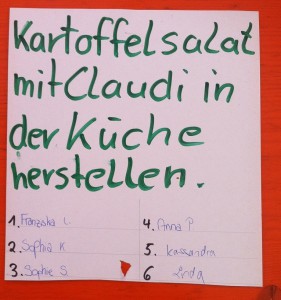 Kartoffelsalat
mit Claudi in
der Küche
herstellen.
1. Franziska L.
2. Sophia K
3. Sophie S.
4. Anna P
5. Kassandra
6 Linda